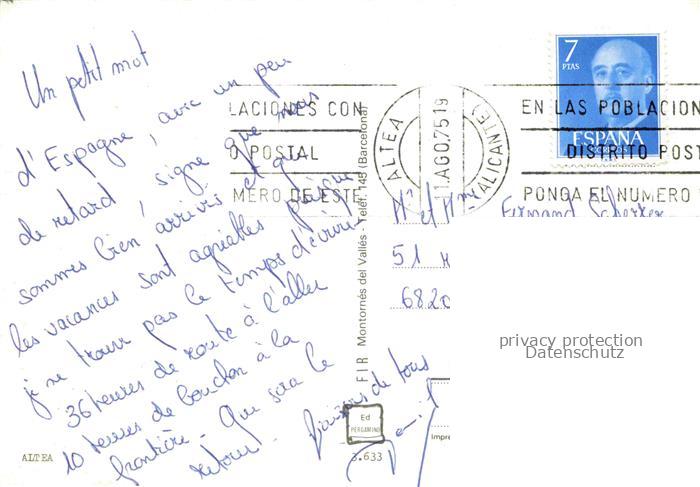 Un petit mot
d'Espagne, avec un peu
de retard, signe que nous
sommes bien arrivés et que
les vacances sont agréables puisque
je ne trouve pas le temps d'écrire
36 heures de route à l'aller
10 heures de bouchon à la
frontière - Que sera le
retour. Bisous de tous
ALTEA
LACIONES CON
O POSTAL
MERO DE ESTE
ALTEA
1 AGO.75 19
(ALICANTE)
EN LAS POBLACION
DISTRITO POST
PONGA EL NUMERO
7
PTAS
ESPAÑA
CORREOS
FIR Montornés del Vallés - Telef. 145 (Barcelona)
Mr et Mme Fernand
51
6820
privacy protection
Datenschutz
Ed
PERGAMINO
3.633
Impre